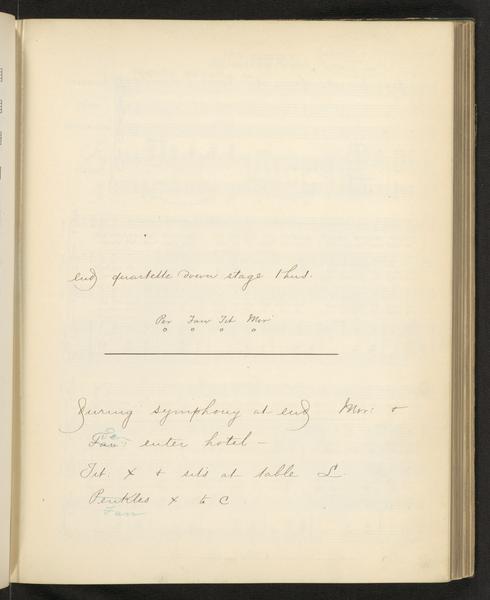 end quartette down stage thus.
Per Faw Tit Mor
o o o o
During symphony at end Mor: +
Faw: enter hotel –
Tit: x + sits at table L.
Perikles x to C
Faw